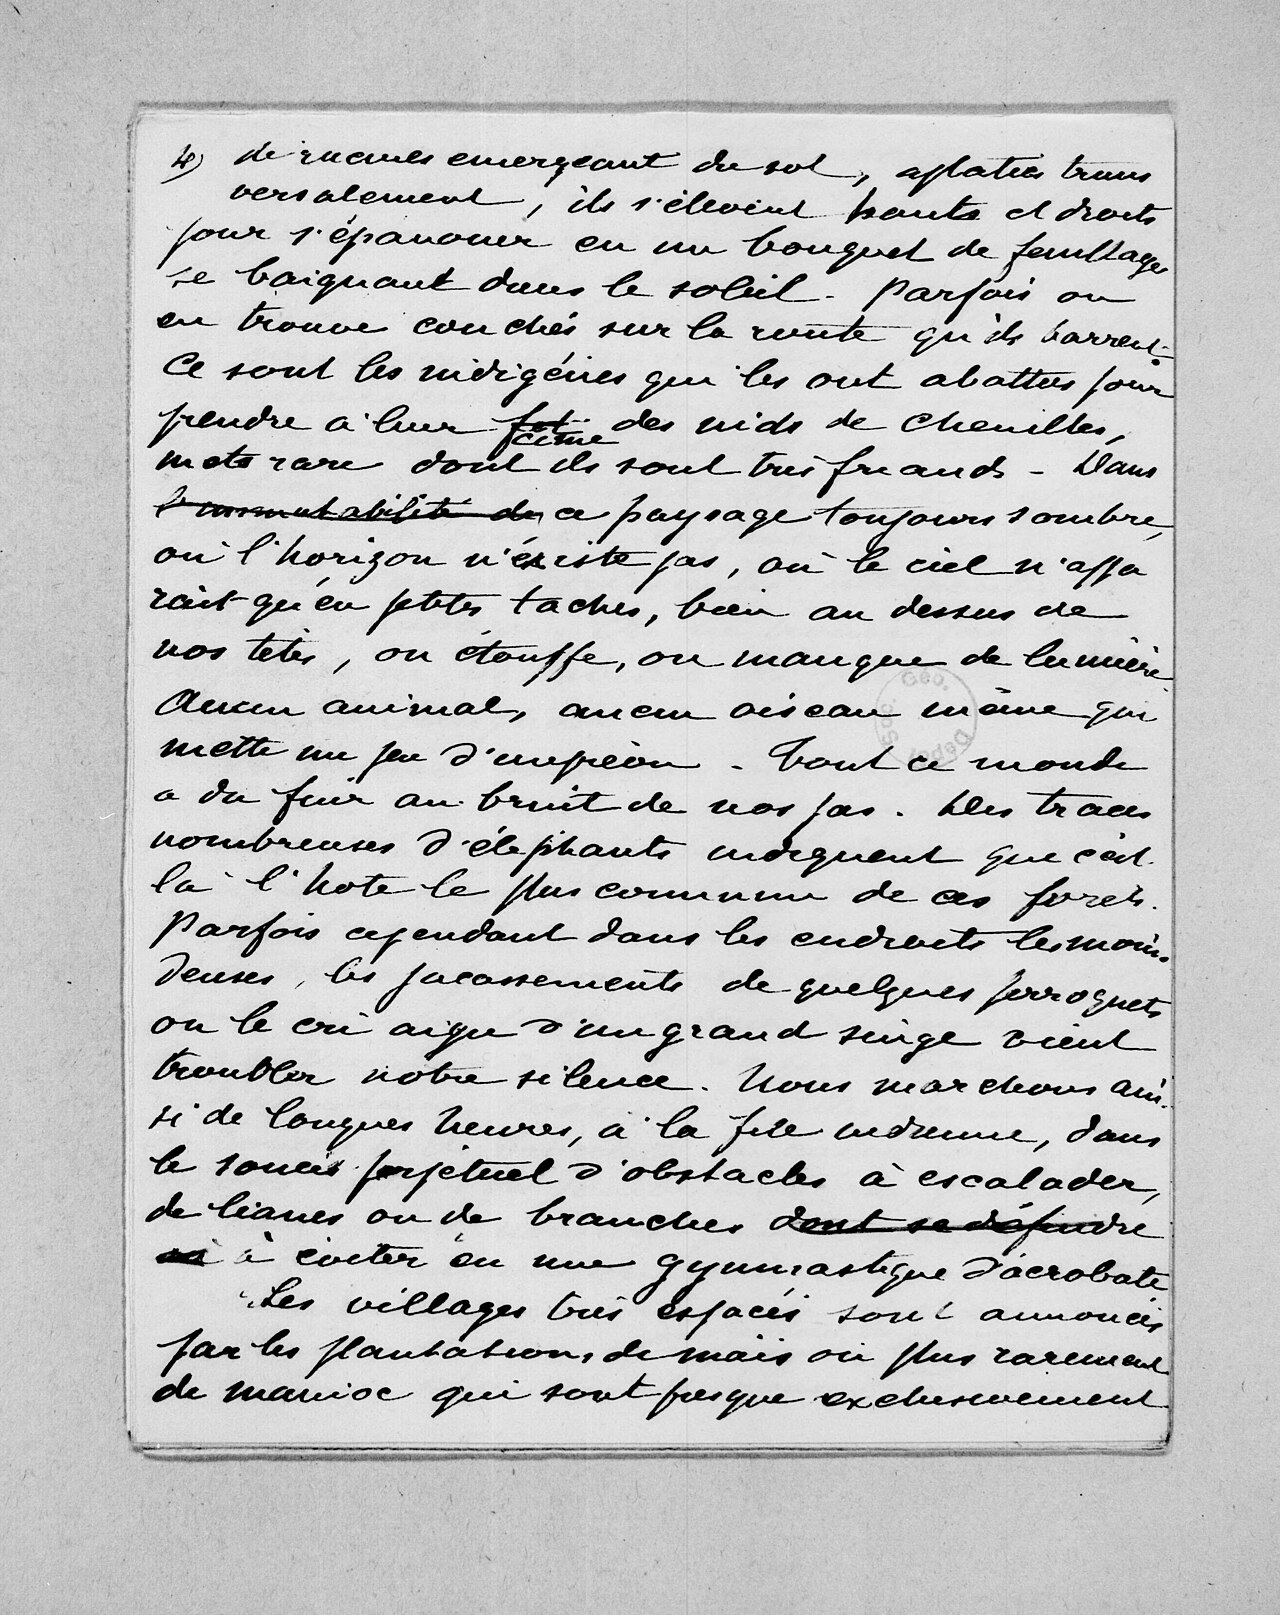 4) de racines emergeant du sol, aplaties trans
versalement, ils s'élèvent hauts et droits
pour s'épanouir en un bouquet de feuillages
se baignant dans le soleil. Parfois on
en trouve couchés sur la route qu'ils barrent.
Ce sont les indigènes qui les ont abattus pour
prendre à leur cime des nids de chenilles,
mets rare dont ils sont très friands - Dans
l'immutabilité de ce paysage toujours sombre,
où l'horizon n'existe pas, où le ciel n'appa
rait qu'en petites taches, bien au dessus de
nos têtes, on étouffe, on manque de lumière.
Aucun animal, aucun oiseau même qui
mette un peu d'imprévu. Tout ce monde
a du fuir au bruit de nos pas. Des traces
nombreuses d'éléphants indiquent que c'est
là l'hote le plus commun de ces forêts.
Parfois cependant dans les endroits les moins
denses, les jacassements de quelques perroquets
ou le cri aigu d'un grand singe vient
troubler notre silence. Nous marchons ain-
si de longues heures, à la file indienne, dans
le soucis perpétuel d'obstacles à escalader,
de lianes ou de branches dont se défendre
à éviter en une gymnastique d'acrobate
Les villages très espacés sont annoncés
par les plantations de maïs ou plus rarement
de manioc qui sont presque exclusivement
Soc. Géo.
Dépôt